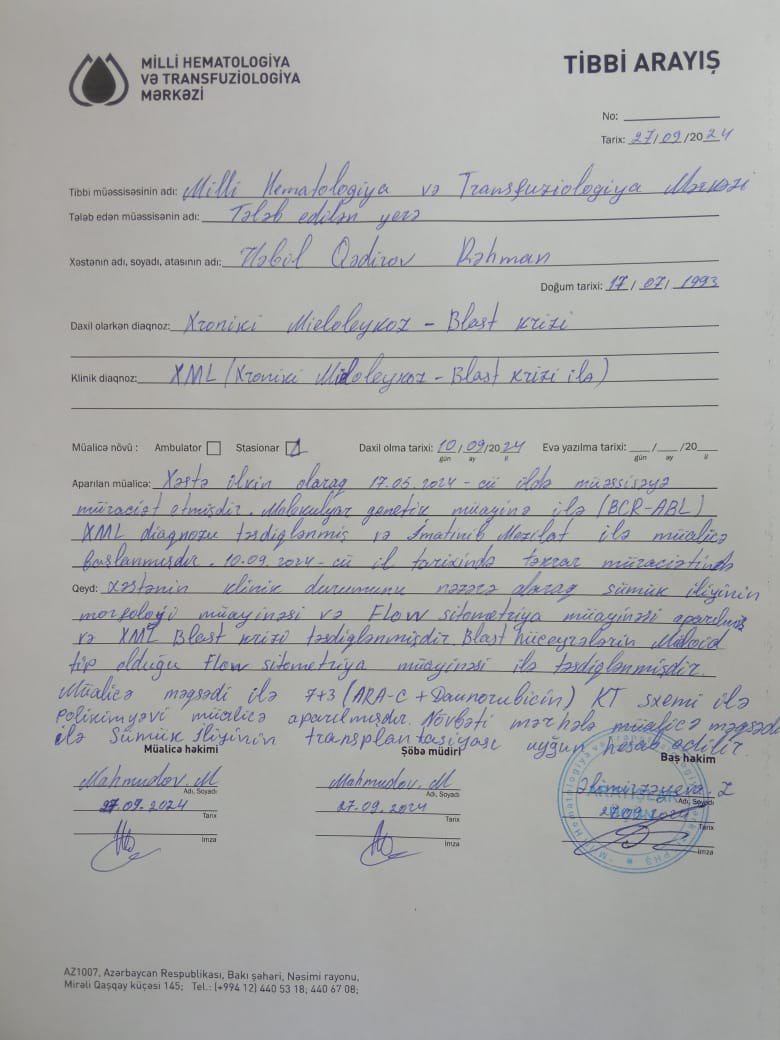 MİLLİ HEMATOLOGİYA
VƏ TRANSFUZİOLOGİYA
MƏRKƏZİ
TİBBİ ARAYIŞ
No:
Tarix: 27/09/2024
Tibbi müəssisəsinin adı: Milli Hematologiya və Transfuziologiya Mərkəzi
Tələb edən müəssisənin adı: Tələb edilən yerə
Xəstənin adı, soyadı, atasının adı: Həbil Qədirov Rəhman
Doğum tarixi: 17/07/1993
Daxil olarkən diaqnoz: Xroniki Mieloleykoz - Blast krizi
Klinik diaqnoz: XML (Xroniki Mieloleykoz - Blast krizi ilə)
Müalicə növü: Ambulator Stasionar Daxil olma tarixi: 10/09/2024 Evə yazılma tarixi: __/__/20__
gün ay il gün ay il
Aparılan müalicə: Xəstə ilkin olaraq 17.05.2024-cü ildə müəssisəyə
müraciət etmişdir. Molekulyar genetik müayinə ilə (BCR-ABL)
XML diaqnozu təsdiqlənmiş və İmatinib Mezilat ilə müalicə
başlanmışdır. 10.09.2024-cü il tarixində təkrar müraciətində
Qeyd: xəstənin klinik durumunu nəzərə alaraq sümük iliyinin
morfoloji müayinəsi və Flow sitometriya müayinəsi aparılmış
və XML Blast krizi təsdiqlənmişdir. Blast hüceyrələrin Mieloid
tip olduğu Flow sitometriya müayinəsi ilə təsdiqlənmişdir.
Müalicə məqsədi ilə 7+3 (ARA-C + Daunorubicin) KT sxemi ilə
polikimyəvi müalicə aparılmışdır. Növbəti mərhələ müalicə məqsədi
ilə Sümük iliyinin transplantasiyası uyğun hesab edilir.
Müalicə həkimi Şöbə müdiri Baş həkim
Mahmudov. M Mahmudov. M Əlimirzəyeva. Z
Adı, Soyadı Adı, Soyadı Adı, Soyadı
27.09.2024 27.09.2024 27.09.2024
Tarix Tarix Tarix
İmza İmza İmza
AZ1007, Azərbaycan Respublikası, Bakı şəhəri, Nəsimi rayonu,
Mirəli Qaşqay küçəsi 145; Tel.: (+994 12) 440 53 18; 440 67 08;